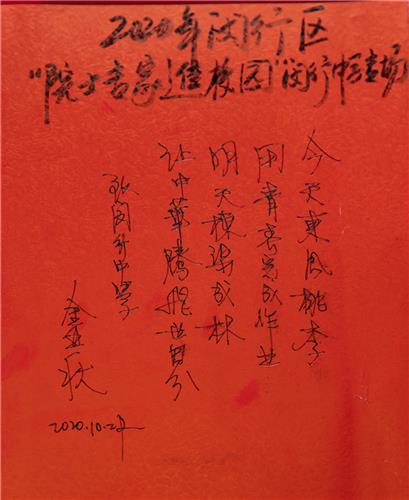 2020年闵行区
"院士专家进校园"闵行中学专场
今天東风桃李
用青春完成作业
明天棟梁成林
让中華騰飛世界
致闵行中学
金亚秋
2020.10.27